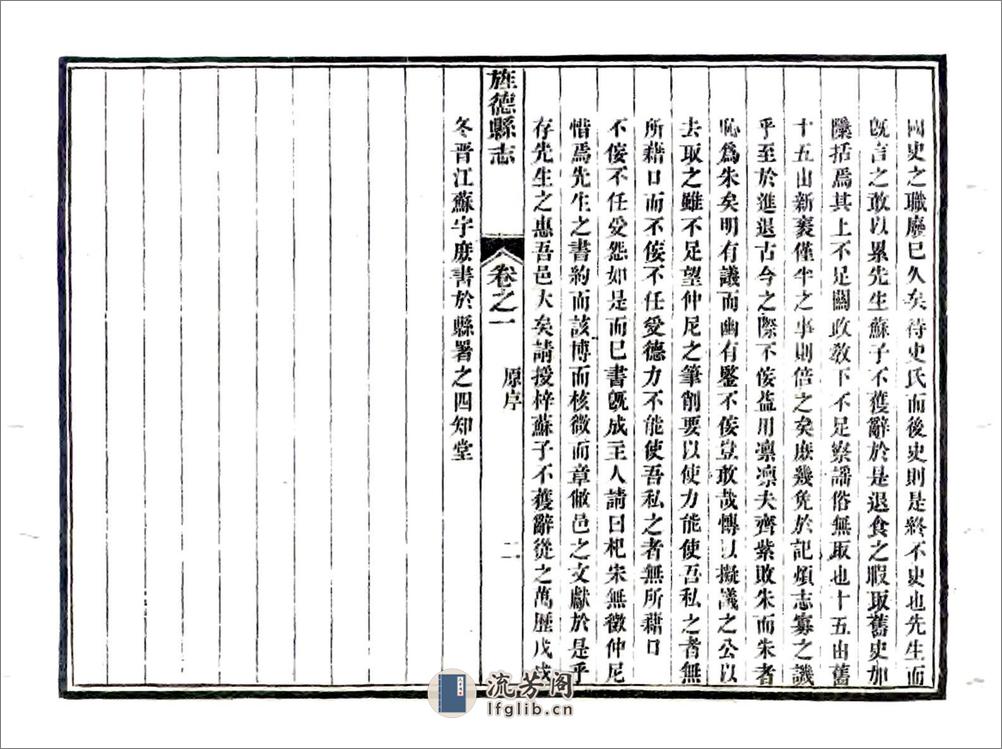 國史之職廢已久矣待史氏而後史則是終不史也先生而
旣言之敢以累先生蘇子不獲辭於是退食之暇取舊史加
檃括焉其上不足關政敎下不足察謡俗無取也十五由舊
十五由新裒僅半之事則倍之矣庶幾免於記煩志寡之譏
乎至於進退古今之際不佞益用凛凛夫齊紫敗朱而朱者
恥爲朱矣明有議而幽有鑒不佞豈敢哉慱以擬議之公以
去取之雖不足望仲尼之筆削要以使力能使吾私之者無
所藉口而不佞不任受德力不能使吾私之者無所藉口
不佞不任受怨如是而已書旣成主人請曰杞宋無徵仲尼
惜焉先生之書約而該博而核微而章僘邑之文獻於是乎
存先生之惠吾邑大矣請授梓蘇子不獲辭從之萬歷戊戌
旌德縣志 卷之一 原序 二
冬晋江蘇宇庶書於縣署之四知堂
流芳閣
lfglib.cn